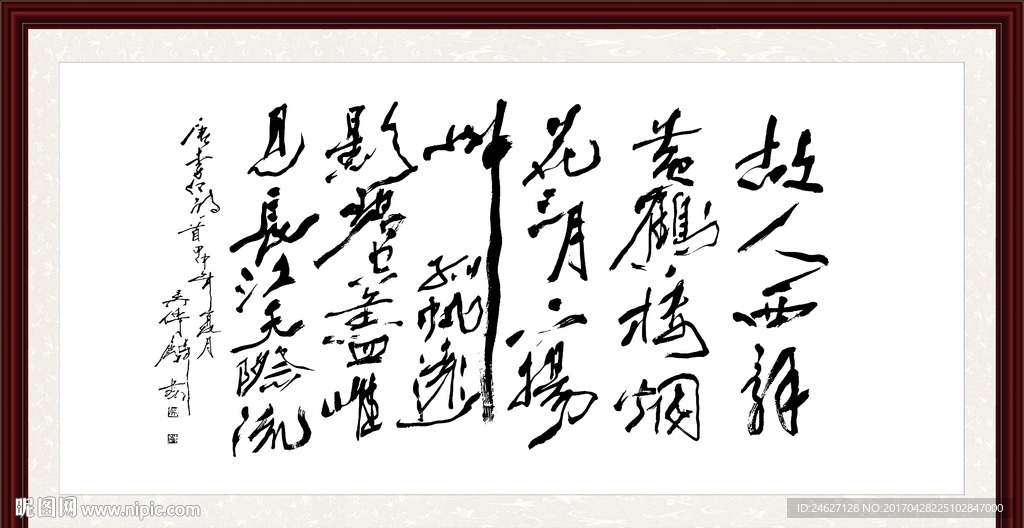 故人西辞
黄鶴楼烟
花三月下揚
州孤帆遠
影碧空盡唯
見長江天際流
唐李白詩一首甲申年夏月
昵图网 www.nipic.com
ID:24627128 NO:20170428225102847000